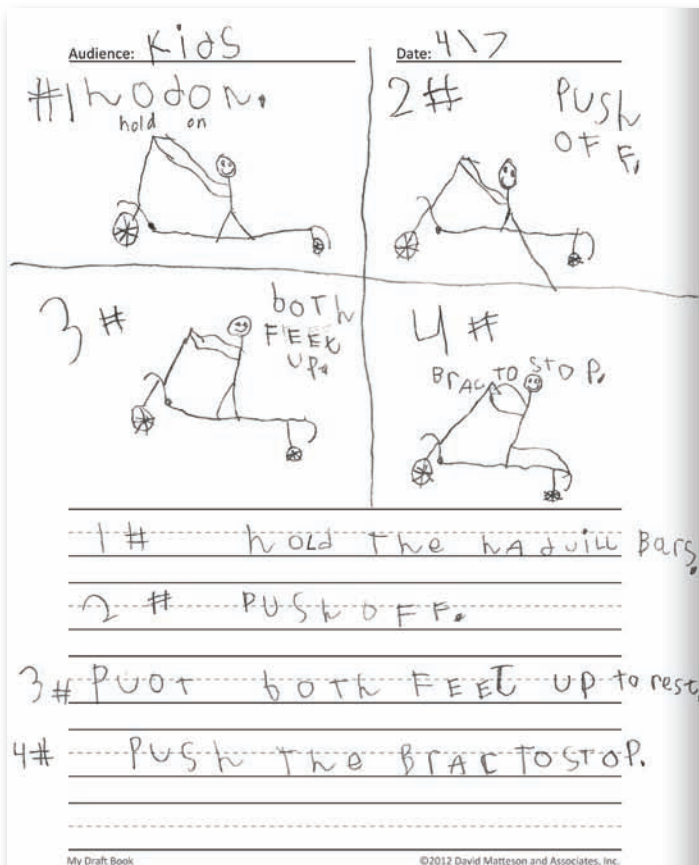 Audience: KidS
Date: 4\7
#1 hodon.
hold on
2# PUSh
OFF.
3# boTh
FEET
UP.
4#
BrAC TO STOP.
1# hOLd The hAdUiLL Bars.
2# PUSh OFF.
3# PUOT boTh FEET UP to rest.
4# PUSh The BrAC TO STOP.
My Draft Book
©2012 David Matteson and Associates, Inc.